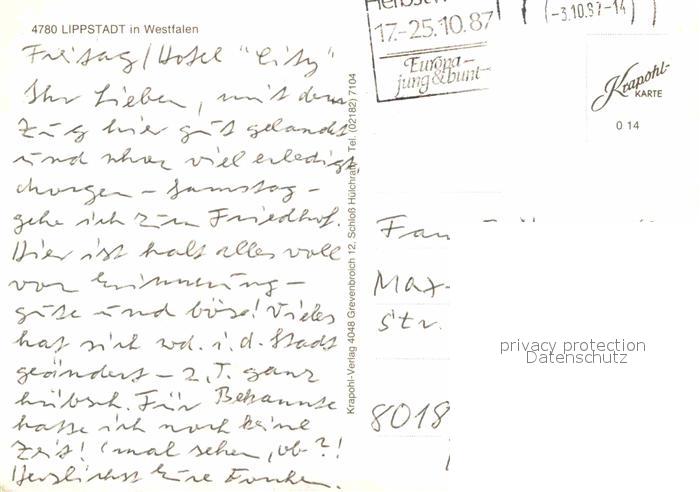 4780 LIPPSTADT in Westfalen
Freitag/Hotel "City"
Ihr Lieben, mit dem
Zug hier gut gelandet
und schon viel erledigt
Morgen - Samstag -
gehe ich zum Friedhof.
Hier ist halt alles voll
von Erinnerung -
gute und böse! Vieles
hat sich wd. i. d. Stadt
geändert - z.T. ganz
hübsch. Für Bekannte
hatte ich noch keine
Zeit! 'mal sehen, ob ?!
Herzlichst Eure
Krapohl-Verlag 4048 Grevenbroich 12, Schloß Hülchrath, Tel. (02182) 7104
17.-25.10.87
Europa-
jung & bunt
-3.10.87-14
Krapohl-
KARTE
0 14
Max-
Str.
8018
privacy protection
Datenschutz